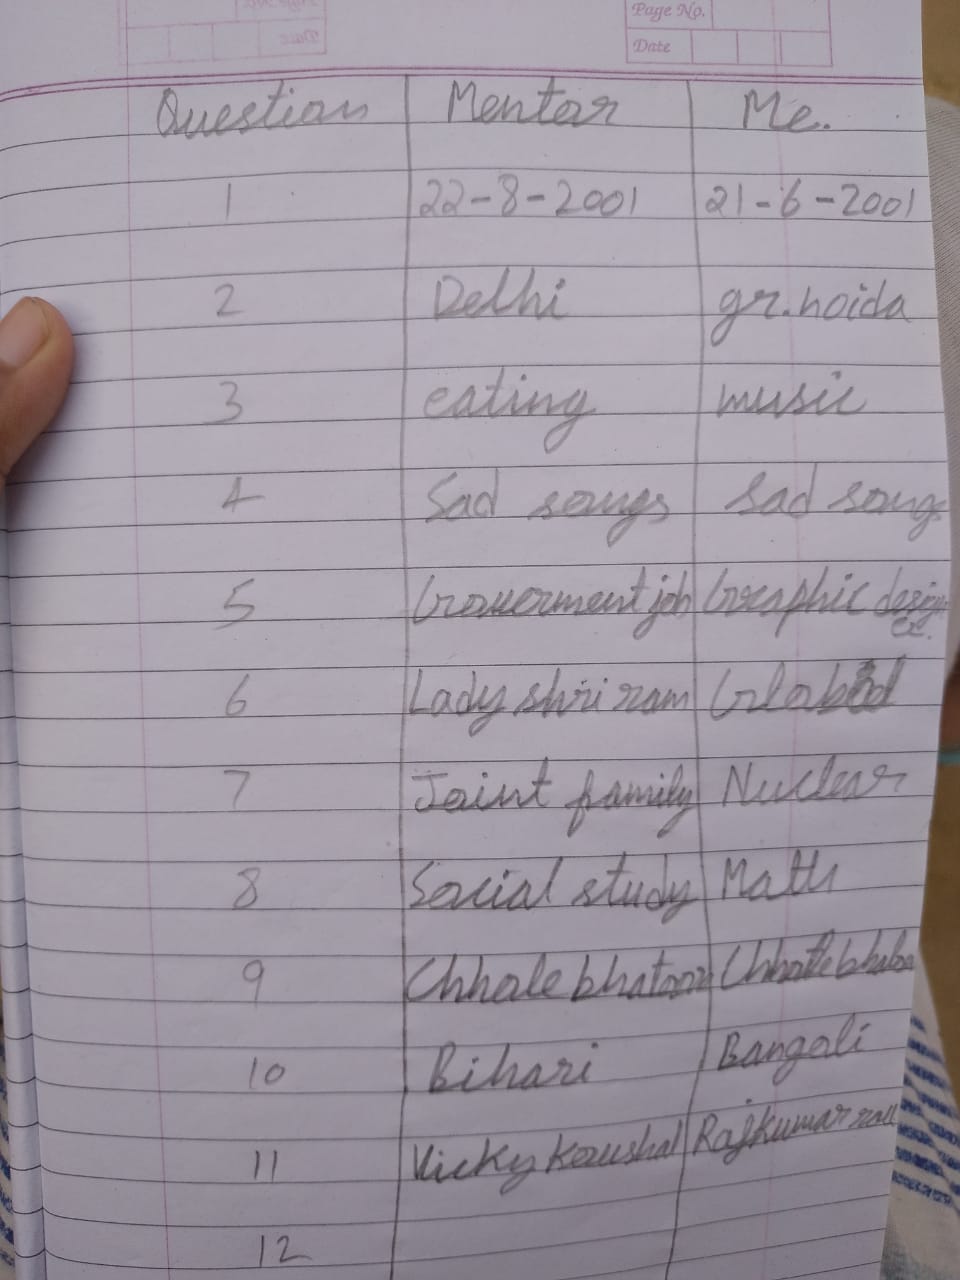 Page No.
Date
Question Mentor Me.
1 22-8-2001 21-6-2001
2 Delhi gr.noida
3 eating music
4 Sad songs Sad songs
5 Government job Graphic design
er.
6 Lady shri ram
7 Joint family Nuclear
8 Social study Math
9 Chhole
10 Bihari Bangali
11 Vicky Koushal Rajkumar rau
12